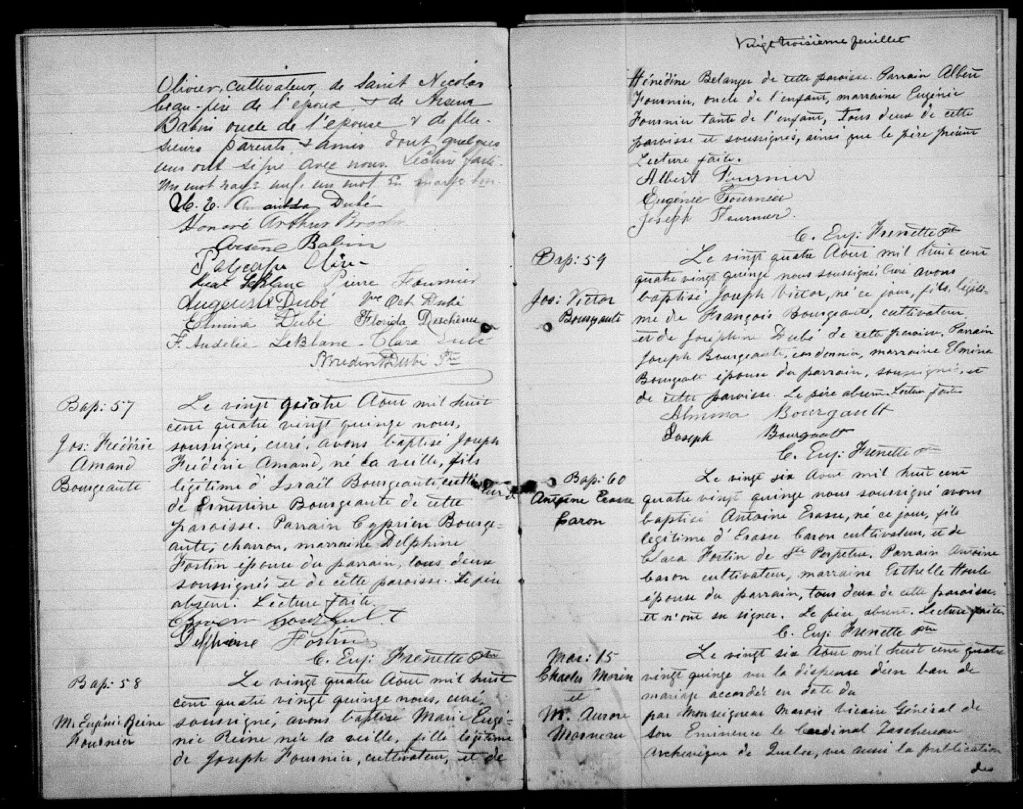 Olivier, cultivateur, de Saint Nicolas
beau-père de l'époux & de Arsène
Babin oncle de l'épouse & de plu-
sieurs parents, & amis dont quelques
uns ont signé avec nous. Lecture faite.
Un mot rayé nul, un mot en marge bon.
Amanda Dubé
Honoré Arthur
Arsène Babin
LeBlanc Pierre Fournier
Eugénie Dubé Oct Dubé
Elmina Dubé Florida Deschenes
F. Audélie LeBlanc Clara Dubé
Dubé Ptre
Bap: 57
Jos: Frédéric
Amand
Bourgeault
Le vingt quatre Aout mil huit
cent quatre vingt quinze nous,
soussigné, curé, avons baptisé Joseph
Fréderic Amand, né la veille, fils
légitime d'Israël Bourgeault, cultivateur &
de Ernestine Bourgeault de cette
paroisse. Parrain Cyprien Bourge-
ault, charron, marraine Delphine
Fortin épouse du parrain, tous deux
soussignés et de cette paroisse. Le père
absent. Lecture faite.
Delphine Fortin
C. Eug: Frenette Ptre
Bap: 58
M. Eugénie Reine
Fournier
Le vingt quatre Aout mil huit
cent quatre vingt quinze nous, curé,
soussigné, avons baptisé Marie Eugé-
nie Reine née la veille, fille légitime
de Joseph Fournier, cultivateur, et de
Vingt troisième feuillet
Hénédine Belanger de cette paroisse. Parrain Albert
Fournier, oncle de l'enfant, marraine Eugénie
Fournier tante de l'enfant, tous deux de cette
paroisse et soussignés, ainsi que le père présent
Lecture faite.
Albert Fournier
Eugénie Fournier
Joseph Fournier
C. Eug: Frenette Ptre
Bap: 59
Jos: Victor
Bourgeault
Le vingt quatre Aout mil huit cent
quatre vingt quinze nous soussigné curé avons
baptisé Joseph Victor, né ce jour, fils légiti-
me de François Bourgeault, cultivateur
et de Joséphine Dubé de cette paroisse, Parrain
Joseph Bourgeault, cordonnier, marraine Elmina
Bourgeault épouse du parrain, soussignés, et
de cette paroisse. Le père absent. Lecture faite
Almina Bourgault
Joseph Bourgault
C. Eug: Frenette Ptre
Bap: 60
Antoine Erasse
Caron
Le vingt six Aout mil huit cent
quatre vingt quinze nous soussigné avons
baptisé Antoine Erasse, né ce jour, fils
légitime d'Erasse Caron cultivateur, et de
Clara Fortin de Ste Perpétue. Parrain Antoine
Caron cultivateur, marraine Esthelle Houle
épouse du parrain, tous deux de cette paroisse
et n'ont su signer. Le père absent. Lecture faite.
C. Eug: Frenette Ptre
Mar: 15
Charles Morin
et
M. Aurore
Le vingt six Aout mil huit cent quatre
vingt quinze vu la dispense d'un ban de
mariage accordée en date du
par Monseigneur Marois Vicaire Général de
son Eminence le Cardinal Taschereau
Archevêque de Québec, vu aussi la publication
des